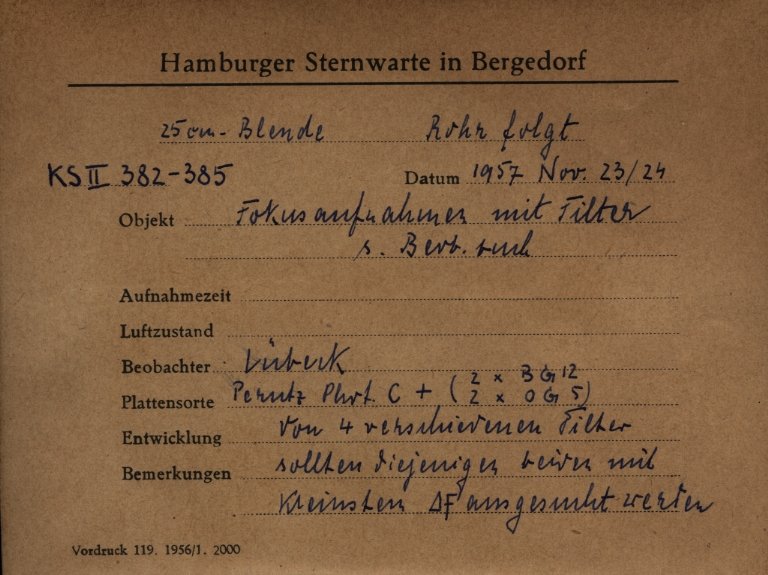 Hamburger Sternwarte in Bergedorf
25cm-Blende Rohr folgt
KS II 382-385 Datum 1957 Nov. 23/24
Objekt Fokusaufnahmen mit Filter
s. Beob. buch
Aufnahmezeit
Luftzustand
Beobachter Lübeck
Plattensorte Perutz Phot. C + ( 2 x BG 12
2 x OG 5)
Entwicklung Von 4 verschiedenen Filter
Bemerkungen sollten diejenigen beiden mit
kleinsten ΔF ausgesucht werden
Vordruck 119. 1956/1. 2000